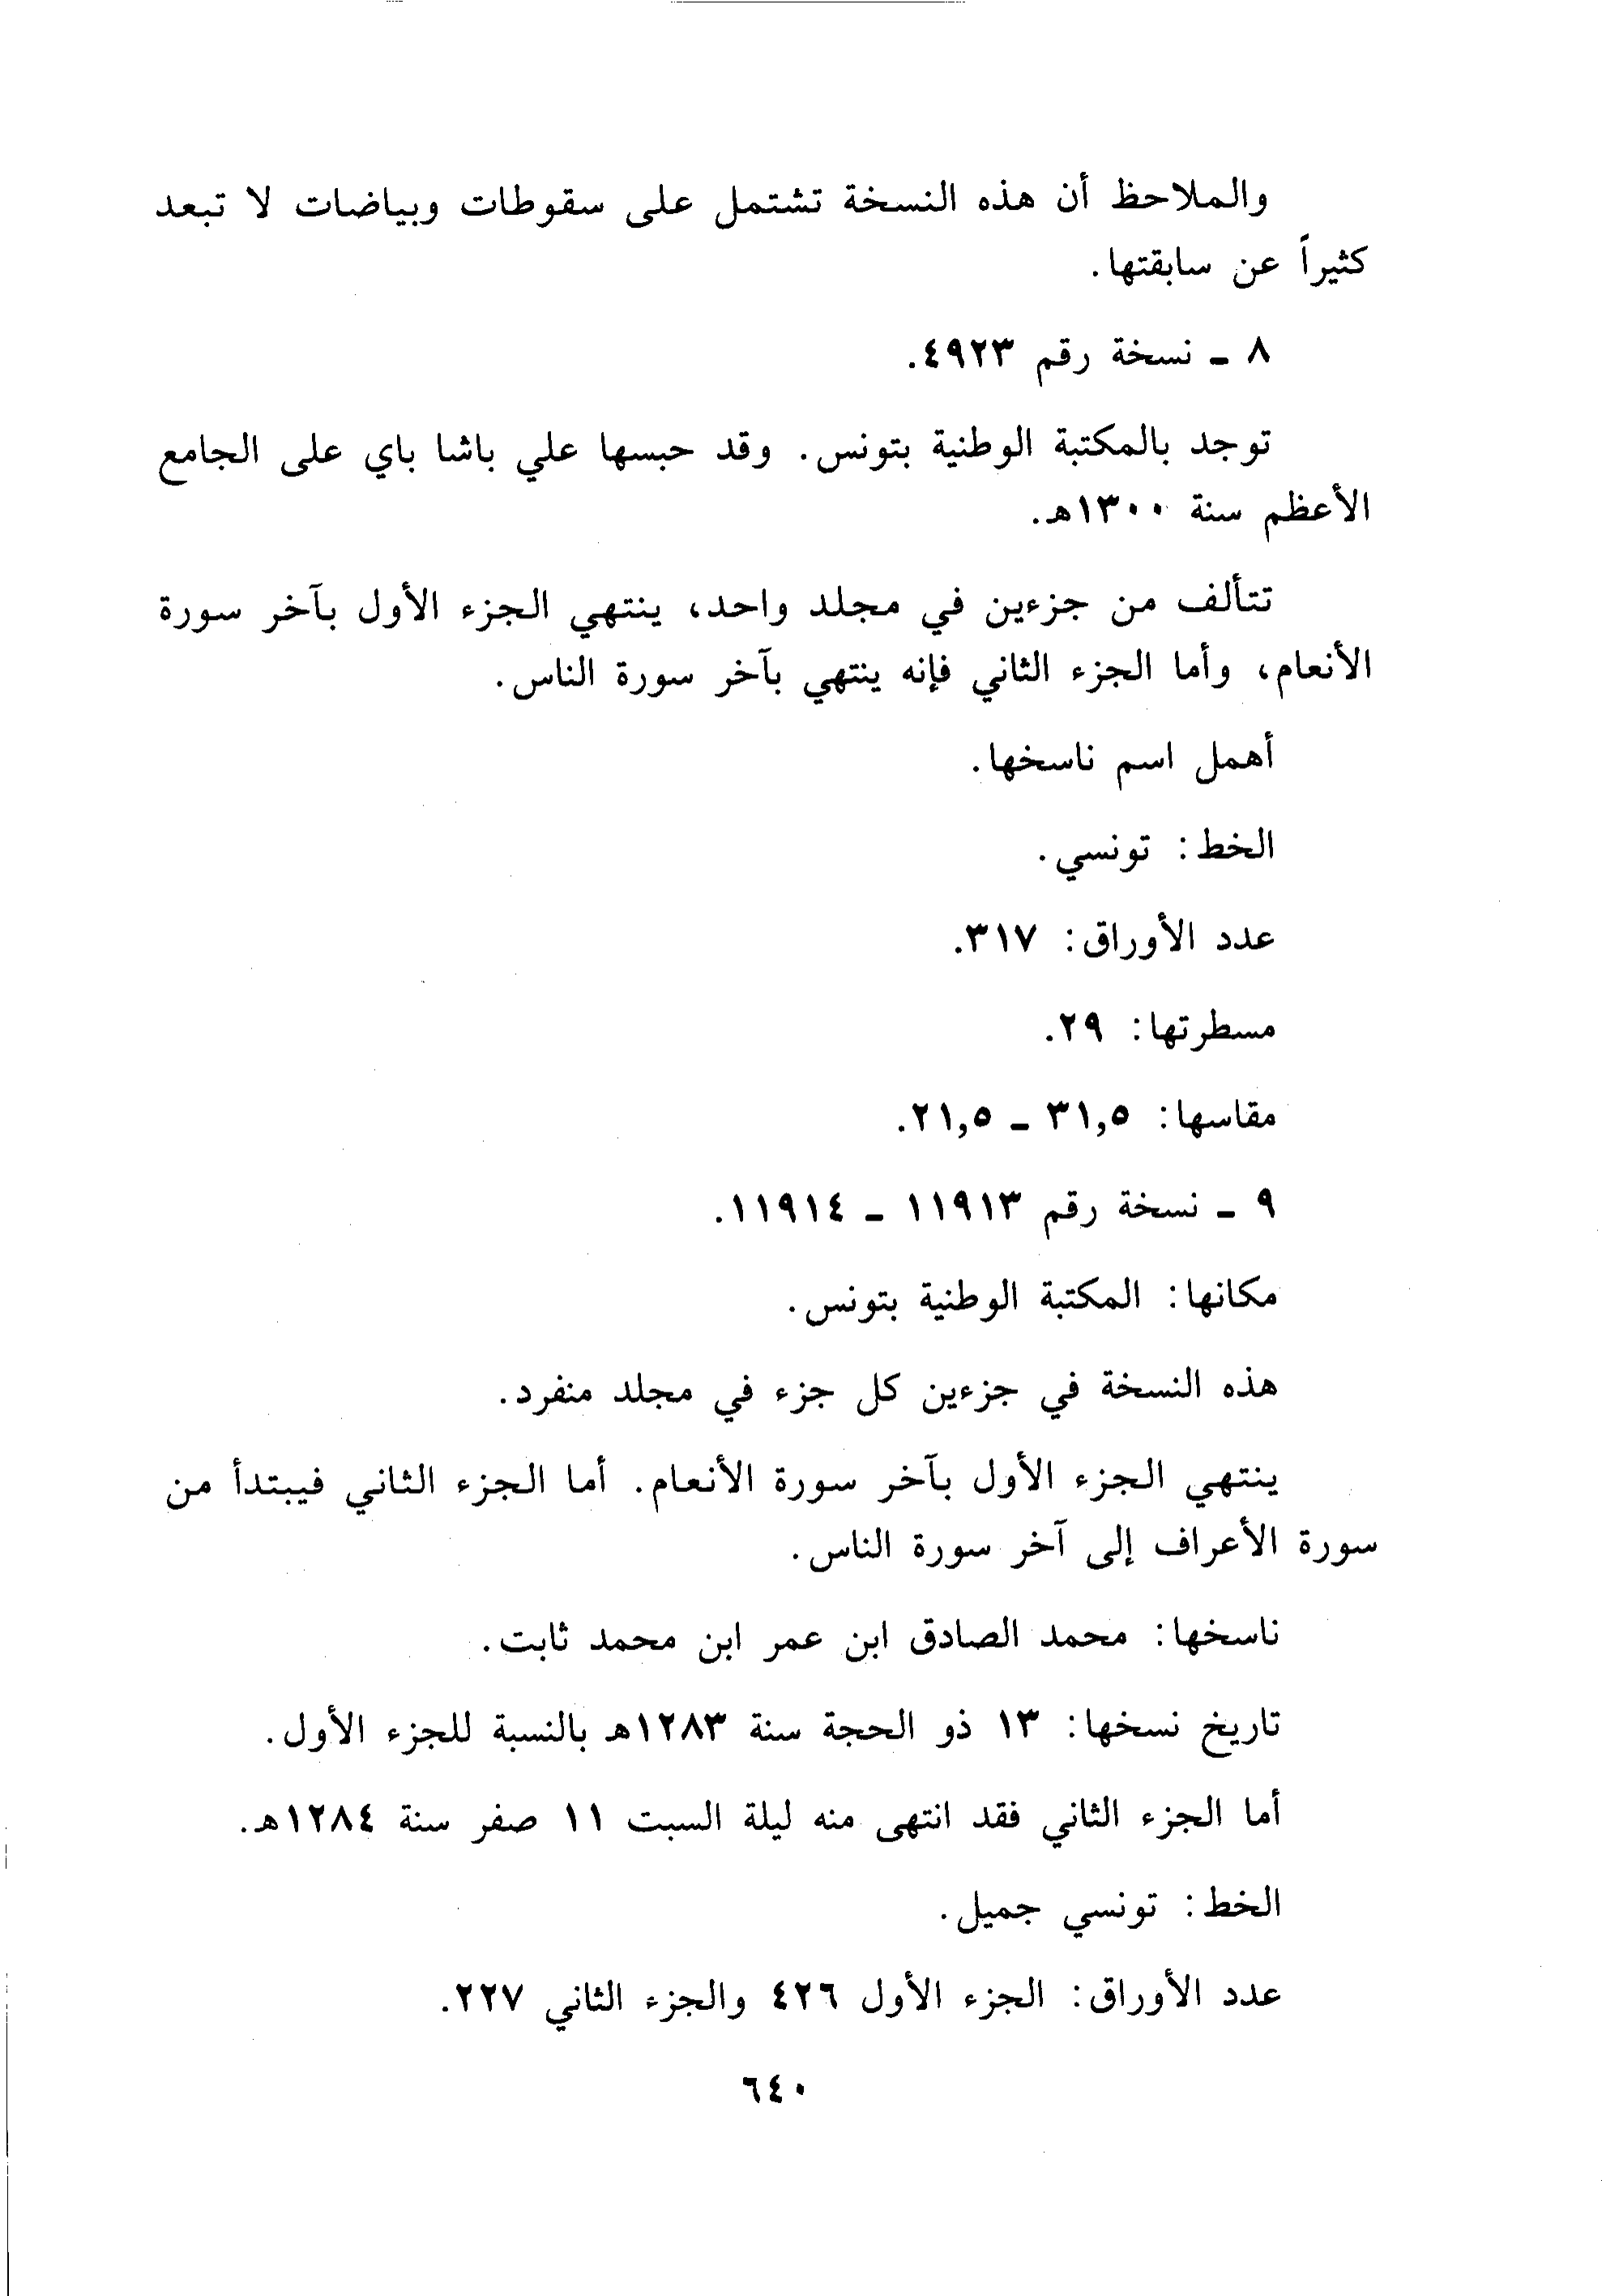 والملاحظ أن هذه النسخة تشتمل على سقوطات وبياضات لا تبعد
كثيراً عن سابقتها.
٨ ـ نسخة رقم ٤٩٢٣.
توجد بالمكتبة الوطنية بتونس. وقد حبسها علي باشا باي على الجامع
الأعظم سنة ١٣٠٠هـ.
تتألف من جزءين في مجلد واحد، ينتهي الجزء الأول بآخر سورة
الأنعام، وأما الجزء الثاني فإنه ينتهي بآخر سورة الناس.
أهمل اسم ناسخها.
الخط: تونسي.
عدد الأوراق: ٣١٧.
مسطرتها: ٢٩.
مقاسها: ٣١,٥ ـ ٢١,٥.
٩ ـ نسخة رقم ١١٩١٣ ـ ١١٩١٤.
مكانها: المكتبة الوطنية بتونس.
هذه النسخة في جزءين كل جزء في مجلد منفرد.
ينتهي الجزء الأول بآخر سورة الأنعام. أما الجزء الثاني فيبتدأ من
سورة الأعراف إلى آخر سورة الناس.
ناسخها: محمد الصادق ابن عمر ابن محمد ثابت.
تاريخ نسخها: ١٣ ذو الحجة سنة ١٢٨٣هـ بالنسبة للجزء الأول.
أما الجزء الثاني فقد انتهى منه ليلة السبت ١١ صفر سنة ١٢٨٤هـ.
الخط: تونسي جميل.
عدد الأوراق: الجزء الأول ٤٢٦ والجزء الثاني ٢٢٧.
٦٤٠